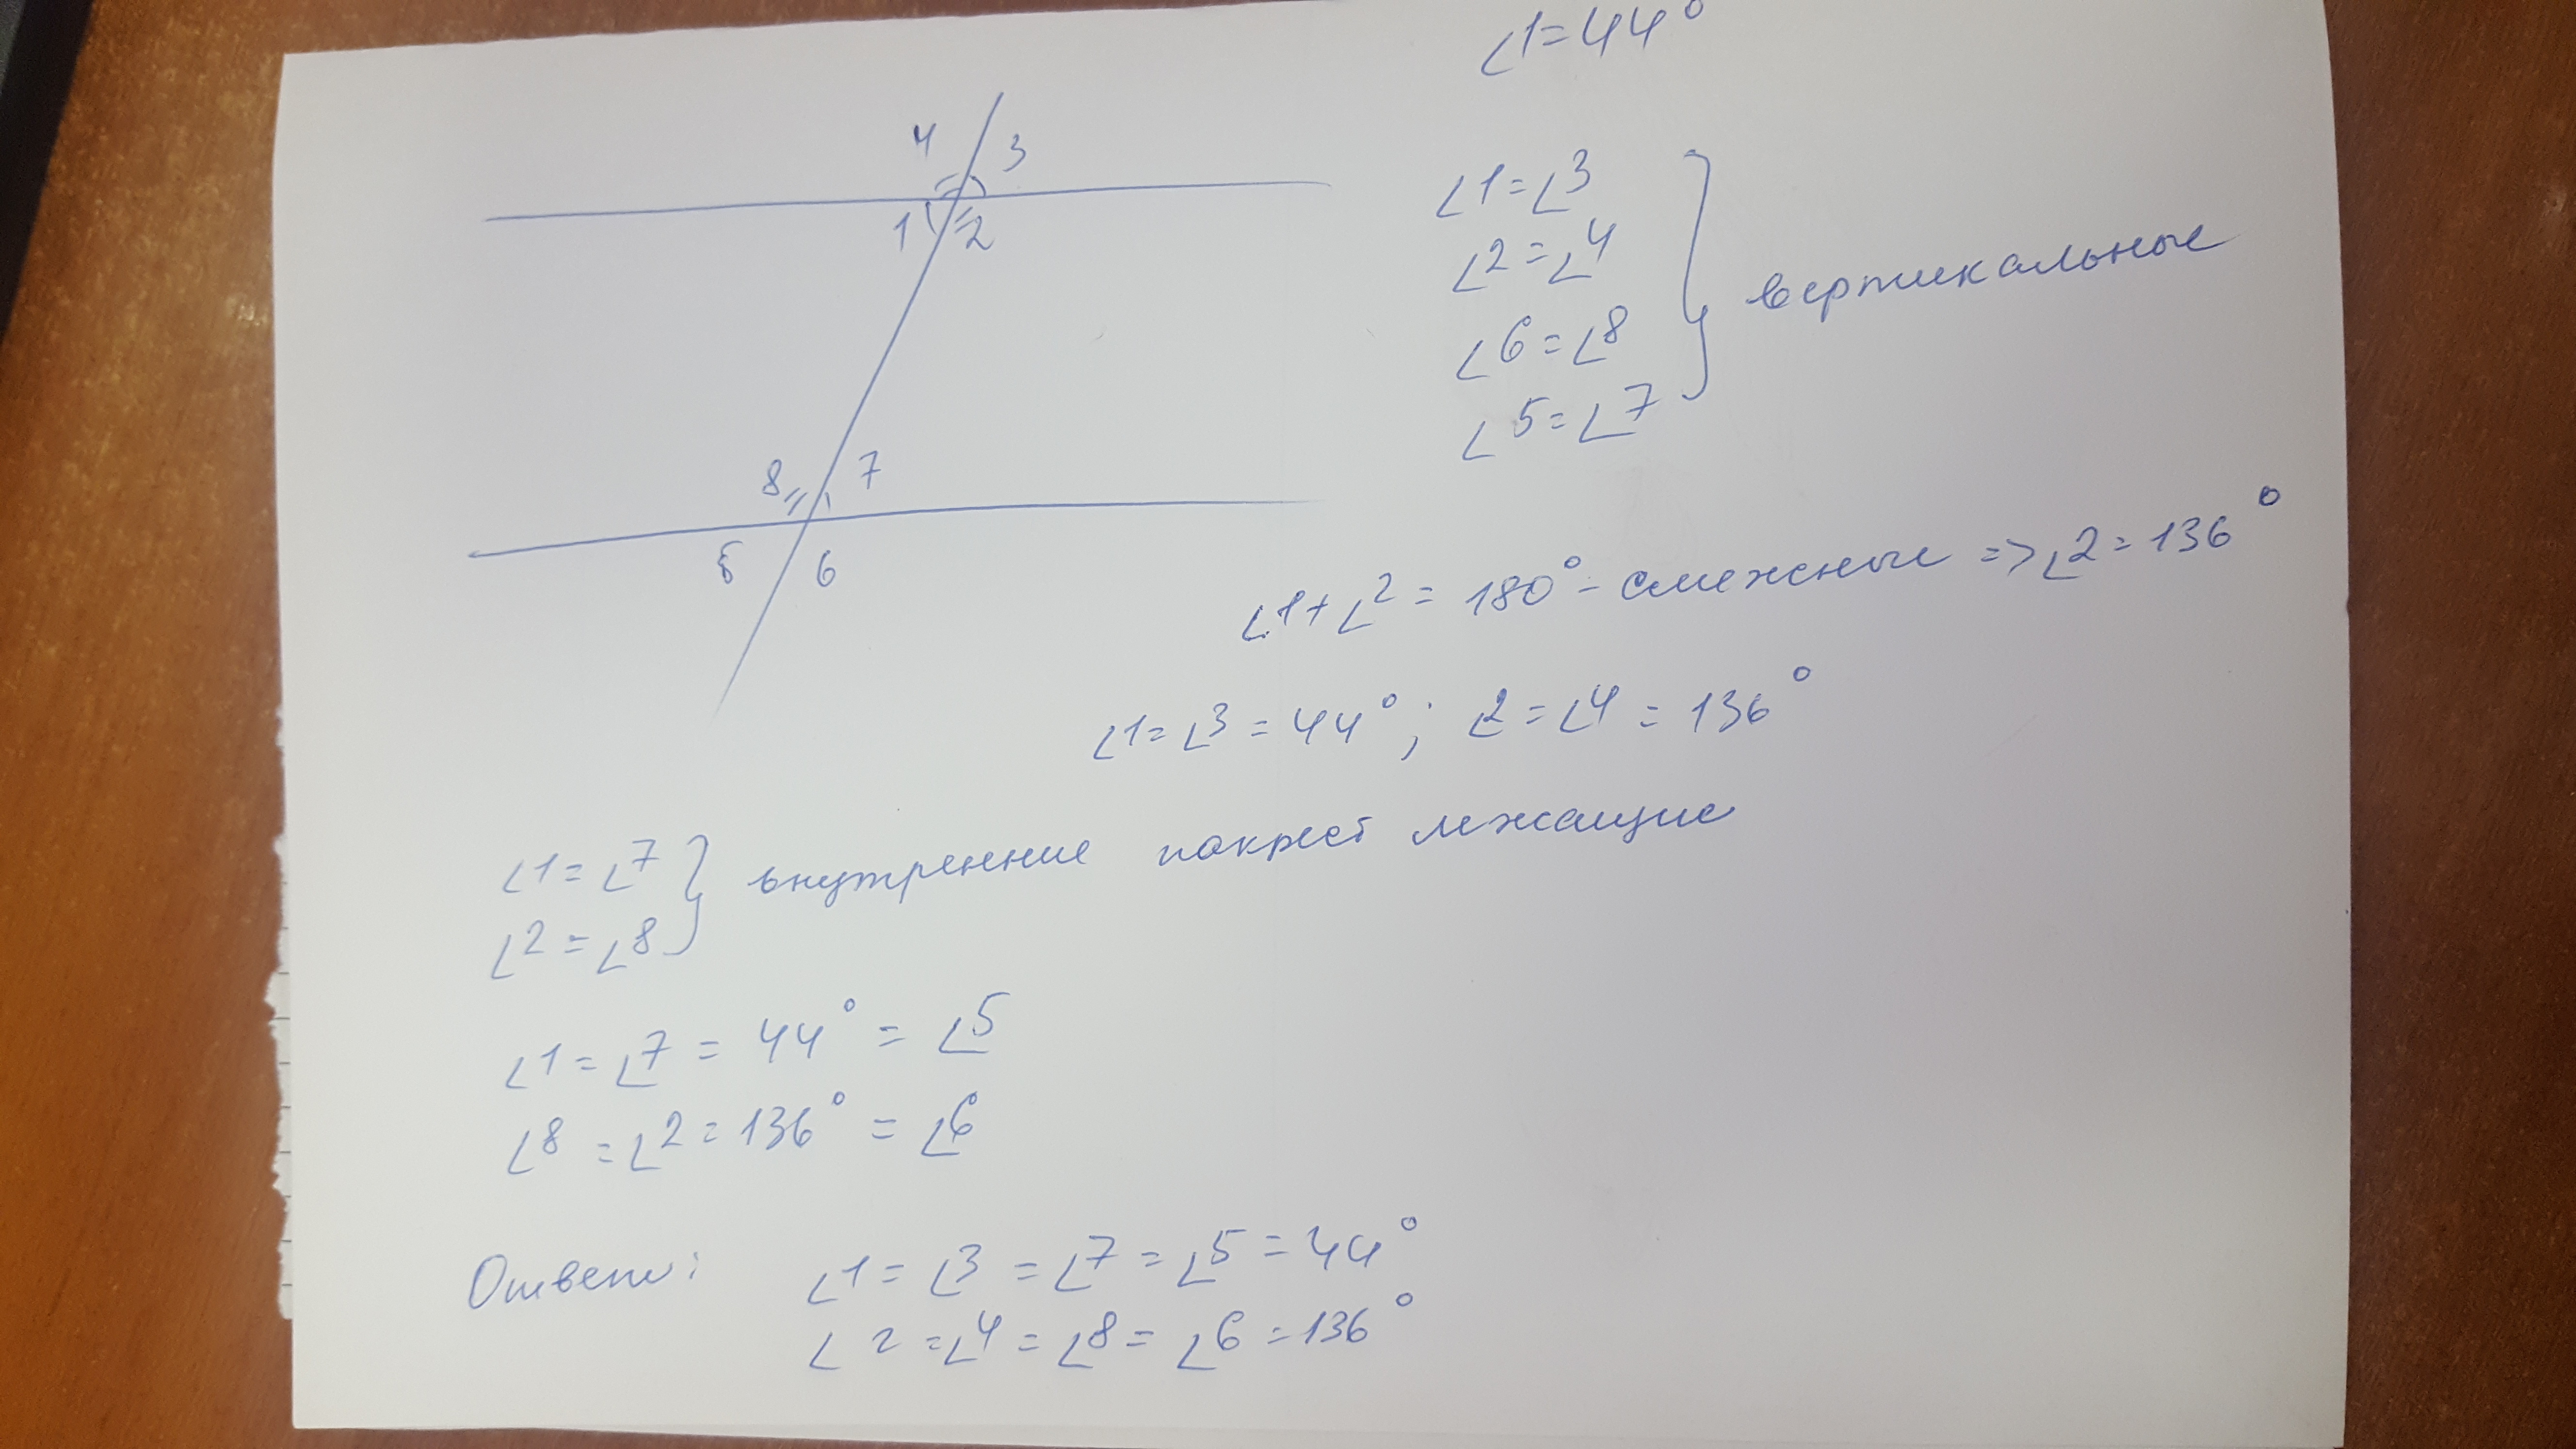 ∠1=44°
4 3
1 2
8 7
5 6
∠1=∠3
∠2=∠4
∠6=∠8
∠5=∠7
вертикальные
∠1+∠2=180°-смежные =>∠2=136°
∠1=∠3=44°; ∠2=∠4=136°
∠1=∠7
∠2=∠8
внутренние накрест лежащие
∠1=∠7=44°=∠5
∠8=∠2=136°=∠6
Ответ: ∠1=∠3=∠7=∠5=44°
∠2=∠4=∠8=∠6=136°